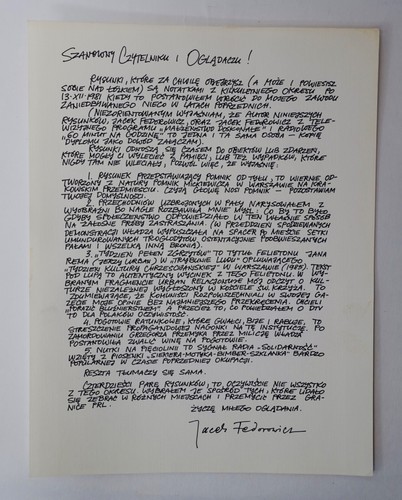 SZANOWNY CZYTELNIKU I OGLĄDACZU!
RYSUNKI, KTÓRE ZA CHWILĘ OBEJRZYSZ (A MOŻE I POWIESISZ
SOBIE NAD ŁÓŻKIEM) SĄ NOTATKAMI Z KILKULETNIEGO OKRESU PO
13.XII.1981 KIEDY TO POSTANOWIŁEM WRÓCIĆ DO MOJEGO ZAWODU
ZANIEDBYWANEGO NIECO W LATACH POPRZEDNICH.
(NIEZORIENTOWANYM WYJAŚNIAM, ŻE AUTOR NINIEJSZYCH
RYSUNKÓW, JACEK FEDOROWICZ, ORAZ JACEK FEDOROWICZ Z TELE-
WIZYJNEGO PROGRAMU „MAŁŻEŃSTWO DOSKONAŁE" I RADIOWEGO
„60 MINUT NA GODZINĘ" TO JEDNA I TA SAMA OSOBA – KOPIĘ
DYPLOMU JAKO DOWÓD ZAŁĄCZAM).
RYSUNKI ODNOSZĄ SIĘ CZASEM DO OBIEKTÓW LUB ZDARZEŃ,
KTÓRE MOGŁY CI WYLECIEĆ Z PAMIĘCI, LUB TEŻ WYPADKÓW, KTÓRE
NIGDY TAM NIE WLECIAŁY, POZWÓL WIĘC, ŻE WYJAŚNIĘ:
1. RYSUNEK PRZEDSTAWIAJĄCY POMNIK OD TYŁU, TO WIERNE OD-
TWORZENIE Z NATURY POMNIK MICKIEWICZA W WARSZAWIE NA KRA-
KOWSKIM PRZEDMIEŚCIU. CZYJĄ GŁOWĘ NOSI POMNIK – POZOSTAWIAM
TWOJEJ DOMYŚLNOŚCI.
2. PRZECHODNIÓW UZBROJONYCH W PAŁY NARYSOWAŁEM Z
WYOBRAŹNI BO NAGLE ROZBAWIŁA MNIE MYŚL, CO BY TO BYŁO,
GDYBY SPOŁECZEŃSTWO ODPOWIEDZIAŁO W TEN WŁAŚNIE SPOSÓB
NA ŻAŁOSNE PRÓBY ZASTRASZANIA. (W PRZEDDZIEŃ SPODZIEWANYCH
DEMONSTRACJI WŁADZA WYPUSZCZAŁA NA SPACER PO MIEŚCIE SETKI
UMUNDUROWANYCH TROGLODYTÓW OSTENTACYJNIE POOBWIESZANYCH
PAŁAMI I WSZELKĄ INNĄ BRONIĄ).
3. „TYDZIEŃ PEŁEN ZGRZYTÓW" TO TYTUŁ FELIETONU JANA
REMA (JERZY URBAN) W „TRYBUNIE LUDU" OPLUWAJĄCEGO
„TYDZIEŃ KULTURY CHRZEŚCIJAŃSKIEJ" W WARSZAWIE (1985). TEKST
POD LUPĄ TO AUTENTYCZNY WYCINEK Z TEGO FELIETONU. W WY-
BRANYM FRAGMENCIE URBAN RELACJONUJE MÓJ ODCZYT O KUL-
TURZE NIEZALEŻNEJ WYGŁOSZONY W KOŚCIELE ŚW. KRZYŻA. TO
ZDUMIEWAJĄCE, ŻE KOMUNIŚCI ROZPOWSZECHNIALI W SWOJEJ GA-
ZECIE MOJE OPINIE BEZ NAJMNIEJSZEGO PRZEKRĘCANIA. CHCIELI
„PORAZIĆ BLUŹNIERSTWEM" A PRZECIEŻ TO, CO POWIEDZIAŁEM O DYM,
TO DLA POLAKÓW OCZYWISTOŚĆ.
4. POGOTOWIE RATUNKOWE, KTÓRE GWAŁCI, BIJE I RABUJE, TO
STRESZCZENIE PROPAGANDOWEJ NAGONKI NA TĘ INSTYTUCJĘ. PO
ZAMORDOWANIU GRZEGORZA PRZEMYKA PRZEZ MILICJĘ WŁADZE
POSTANOWIŁA ZWALIĆ WINĘ NA POGOTOWIE.
5. NUTKI NA PIĘCIOLINII TO SYGNAŁ RADIA „SOLIDARNOŚĆ"
WZIĘTY Z PIOSENKI „SIEKIERA-MOTYKA-BIMBER-SZKLANKA" BARDZO
POPULARNEJ W CZASIE POPRZEDNIEJ OKUPACJI.
RESZTA TŁUMACZY SIĘ SAMA.
CZTERDZIEŚCI PARĘ RYSUNKÓW, TO, OCZYWIŚCIE NIE WSZYSTKO
Z TEGO OKRESU. WYBRAŁEM ZE SPOŚRÓD TYCH, KTÓRE UDAŁO
SIĘ ZEBRAĆ W RÓŻNYCH MIEJSCACH I PRZEMYCIĆ PRZEZ GRA-
NICE PRL.
ŻYCZĘ MIŁEGO OGLĄDANIA.
Jacek Fedorowicz